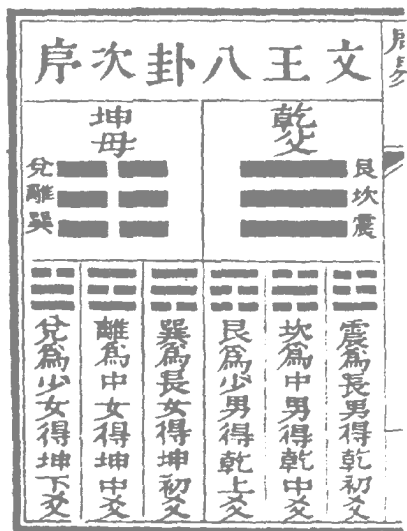 文王八卦次序
乾父
艮
坎
震
坤母
兌
離
巽
震爲長男得乾初爻
坎爲中男得乾中爻
艮爲少男得乾上爻
巽爲長女得坤初爻
離爲中女得坤中爻
兌爲少女得坤下爻